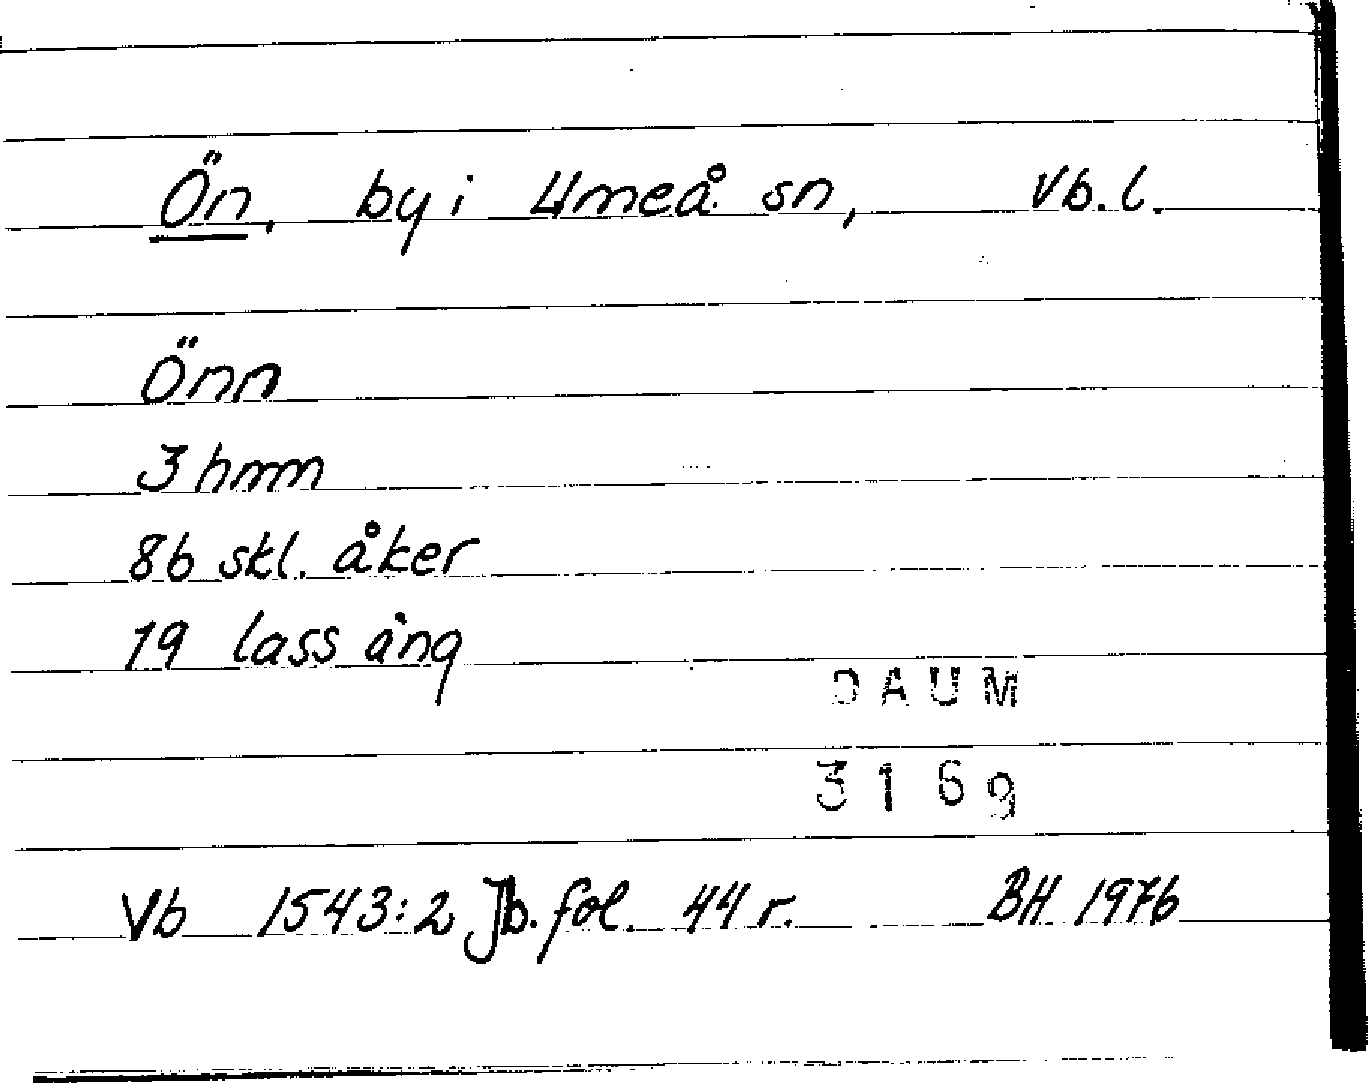 Ön, by i Umeå sn, Vb. l.
Önn
3 hmm
86 skl. åker
19 lass äng
DAUM
3169
Vb 1543:2 Jb. fol. 44 r. BH 1976